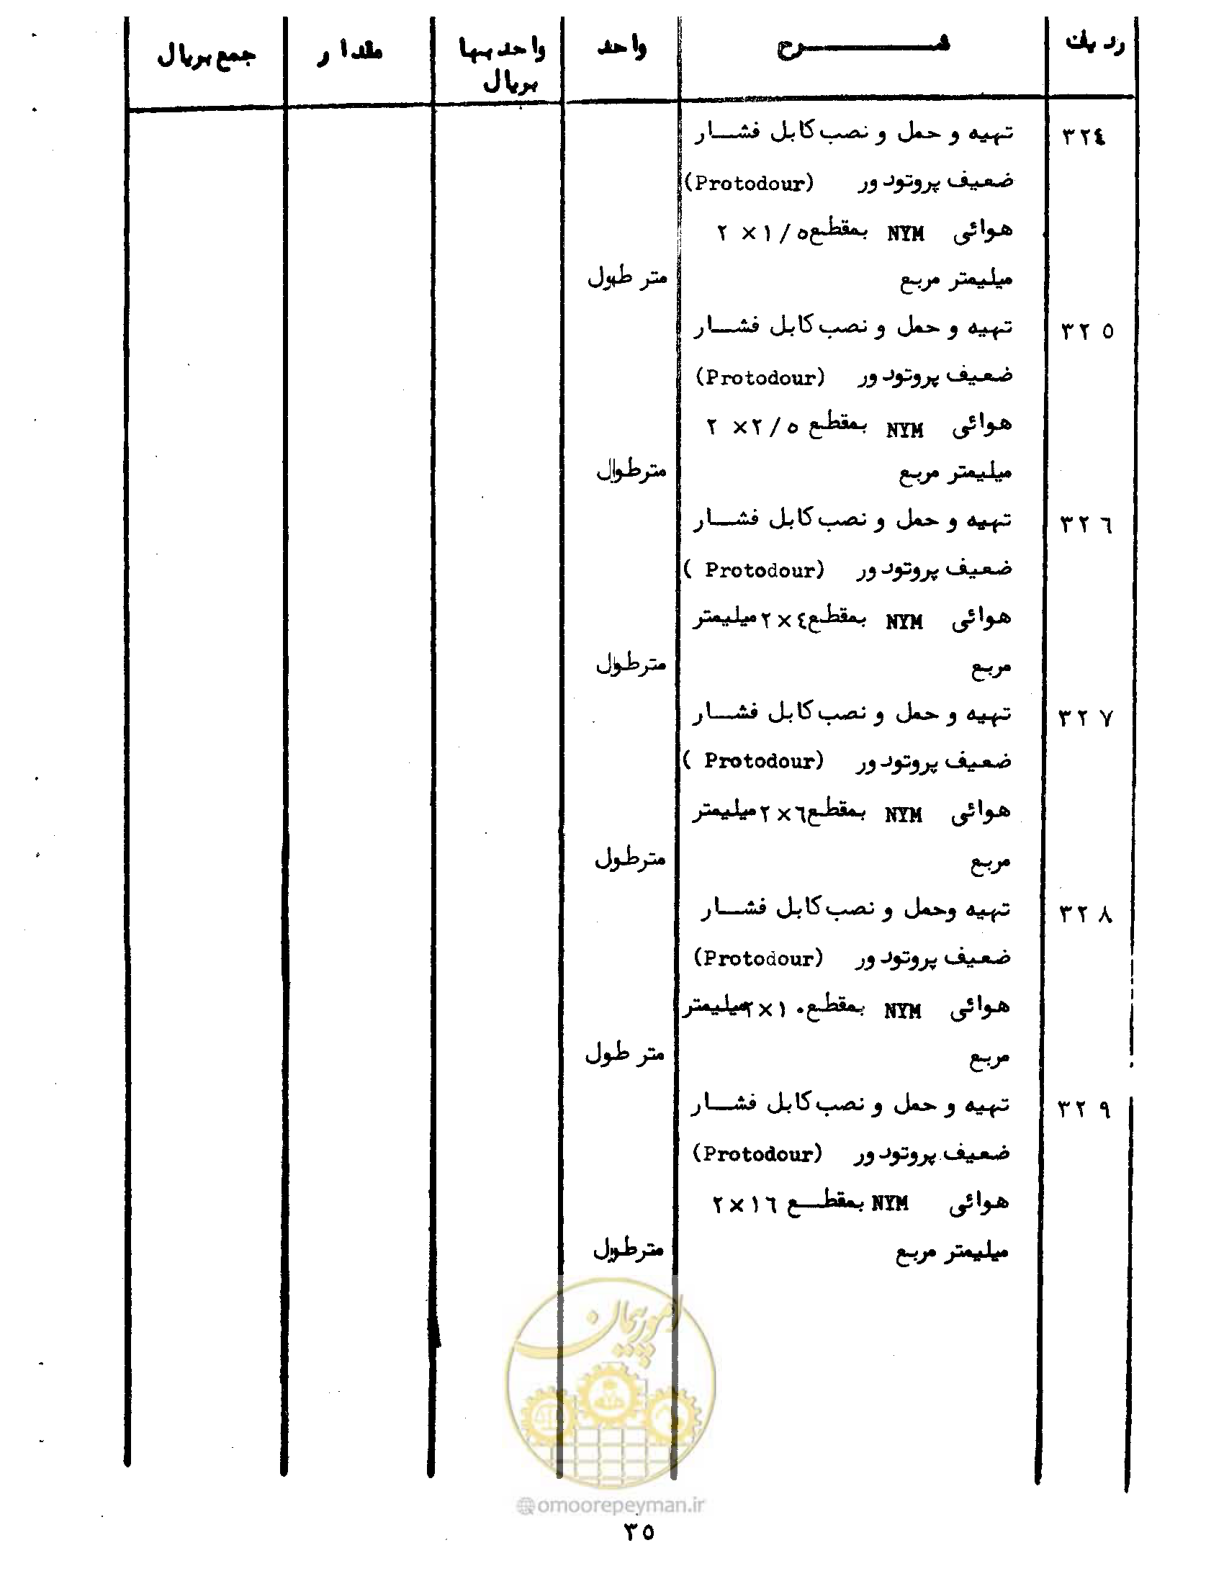 ردیف شـــرح واحد واحد بهبها بریال مقدار جمع بریال
٣٢٤ تهیه و حمل و نصب کابل فشـــار
ضعیف پروتودور (Protodour)
هوائی NYM بمقطع ١/٥ × ٢
میلیمتر مربع متر طول
٣٢٥ تهیه و حمل و نصب کابل فشـــار
ضعیف پروتودور (Protodour)
هوائی NYM بمقطع ٢/٥ × ٢
میلیمتر مربع مترطول
٣٢٦ تهیه و حمل و نصب کابل فشـــار
ضعیف پروتودور (Protodour )
هوائی NYM بمقطع ٤ × ٢ میلیمتر
مربع مترطول
٣٢٧ تهیه و حمل و نصب کابل فشـــار
ضعیف پروتودور (Protodour )
هوائی NYM بمقطع ٦ × ٢ میلیمتر
مربع مترطول
٣٢٨ تهیه وحمل و نصب کابل فشـــار
ضعیف پروتودور (Protodour)
هوائی NYM بمقطع ١٠ × ٢ میلیمتر
مربع متر طول
٣٢٩ تهیه و حمل و نصب کابل فشـــار
ضعیف پروتودور (Protodour)
هوائی NYM بمقطـــع ١٦ × ٢
میلیمتر مربع مترطول
امور پیمان
omoorepeyman.ir
٣٥